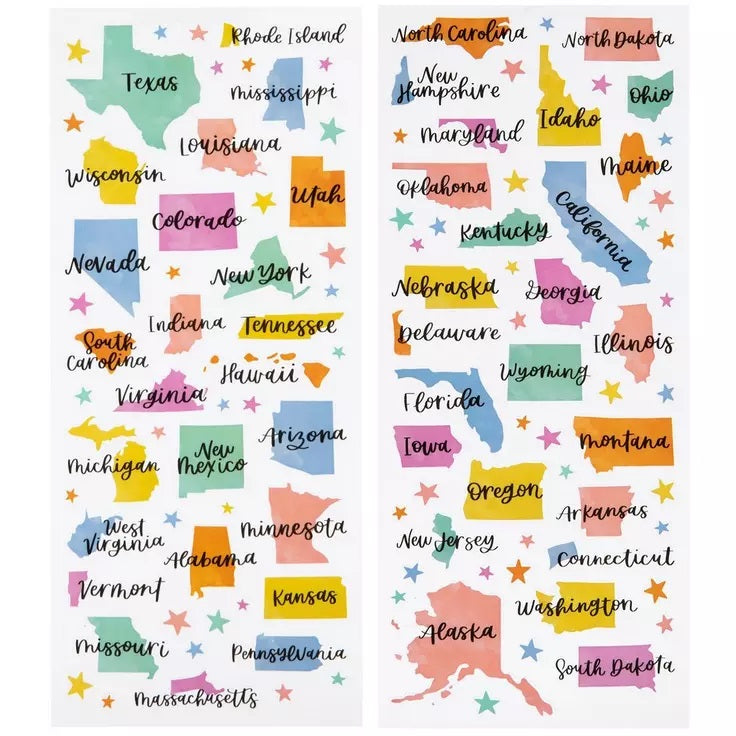 Rhode Island
Texas
Mississippi
Louisiana
Wisconsin
Utah
Colorado
Nevada
New York
Indiana
Tennessee
South
Carolina
Hawaii
Virginia
Michigan
New
Mexico
Arizona
West
Virginia
Minnesota
Alabama
Vermont
Kansas
Missouri
Pennsylvania
Massachusetts
North Carolina
North Dakota
New
Hampshire
Ohio
Idaho
Maryland
Maine
Oklahoma
California
Kentucky
Nebraska
Georgia
Delaware
Illinois
Wyoming
Florida
Iowa
Montana
Oregon
Arkansas
New Jersey
Connecticut
Washington
Alaska
South Dakota